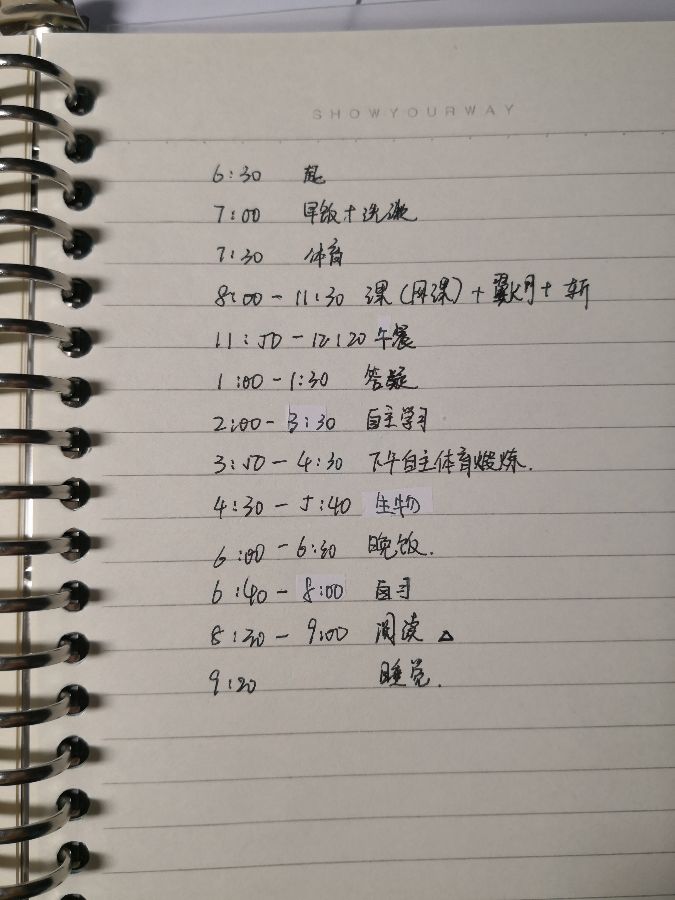 SHOWYOURWAY
6:30 起
7:00 早饭+洗漱
7:30 体育
8:00-11:30 课(网课)+翼K阅+斩
11:50-12:20 午餐
1:00-1:30 答疑
2:00-3:30 自主学习
3:50-4:30 下午自主体育锻炼.
4:30-5:40 生物
6:00-6:30 晚饭.
6:40-8:00 自习
8:30-9:00 阅读 △
9:20 睡觉.